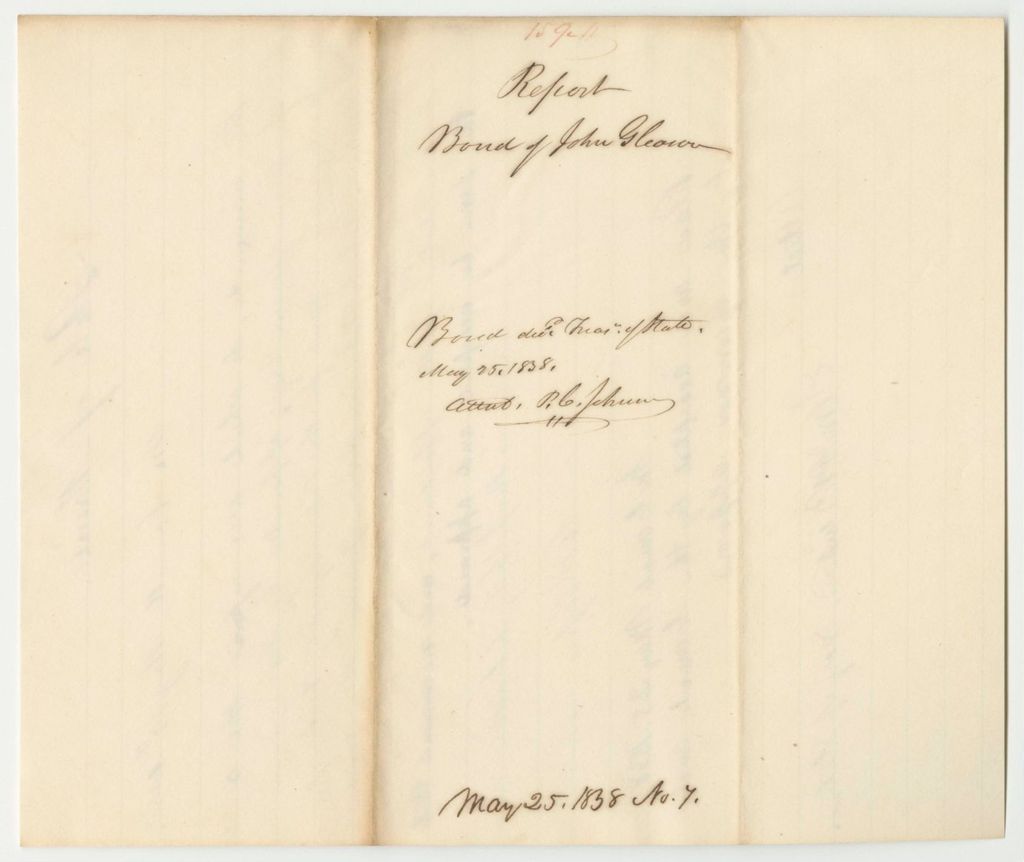 Report
Bond of John Gleason
Bond del'd Treas.r of State.
May 25, 1838.
Attest. P. C. Johnson
May 25. 1838 No. 7.